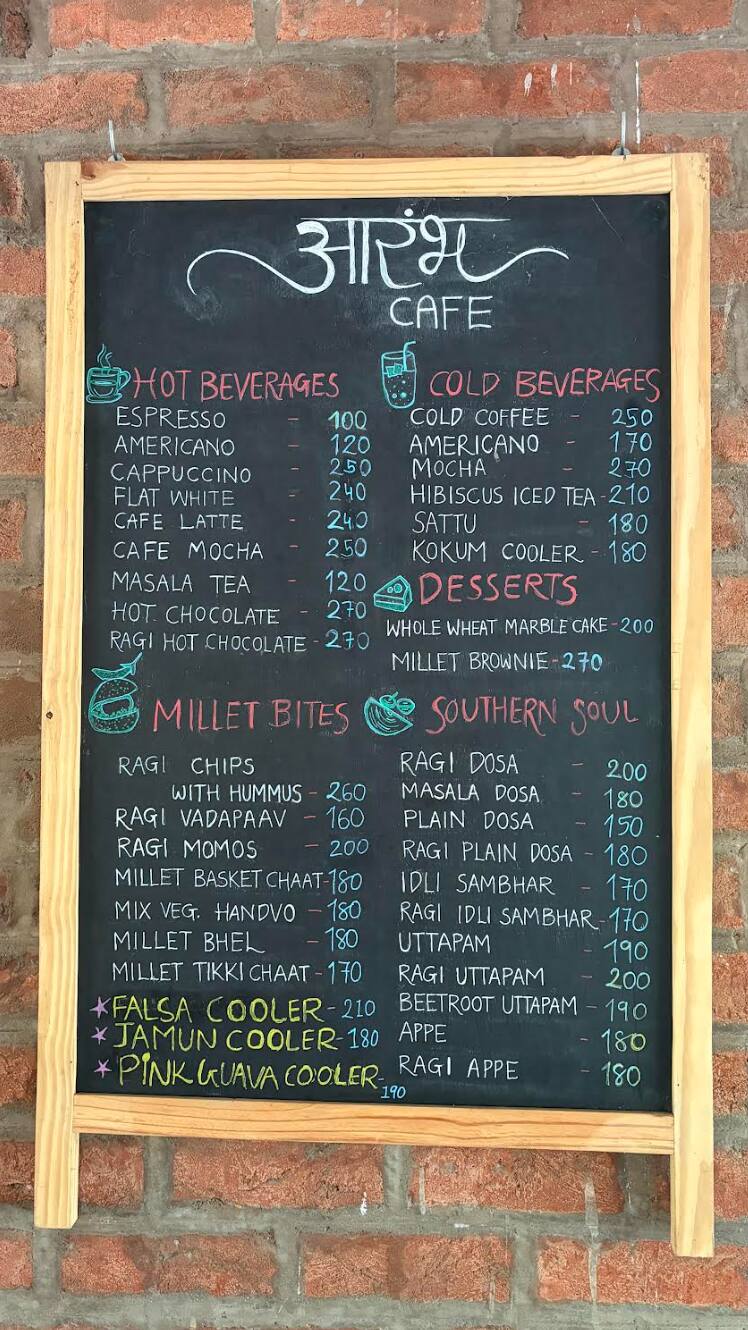 आरंभ
CAFE
HOT BEVERAGES
ESPRESSO - 100
AMERICANO - 120
CAPPUCCINO - 250
FLAT WHITE - 240
CAFE LATTE - 240
CAFE MOCHA - 250
MASALA TEA - 120
HOT CHOCOLATE - 270
RAGI HOT CHOCOLATE - 270
COLD BEVERAGES
COLD COFFEE - 250
AMERICANO - 170
MOCHA - 270
HIBISCUS ICED TEA - 210
SATTU - 180
KOKUM COOLER - 180
DESSERTS
WHOLE WHEAT MARBLE CAKE - 200
MILLET BROWNIE - 270
MILLET BITES
RAGI CHIPS
WITH HUMMUS - 260
RAGI VADAPAAV - 160
RAGI MOMOS - 200
MILLET BASKET CHAAT - 180
MIX VEG. HANDVO - 180
MILLET BHEL - 180
MILLET TIKKI CHAAT - 170
★ FALSA COOLER - 210
★ JAMUN COOLER - 180
★ PINK GUAVA COOLER - 190
SOUTHERN SOUL
RAGI DOSA - 200
MASALA DOSA - 180
PLAIN DOSA - 150
RAGI PLAIN DOSA - 180
IDLI SAMBHAR - 170
RAGI IDLI SAMBHAR - 170
UTTAPAM - 190
RAGI UTTAPAM - 200
BEETROOT UTTAPAM - 190
APPE - 180
RAGI APPE - 180